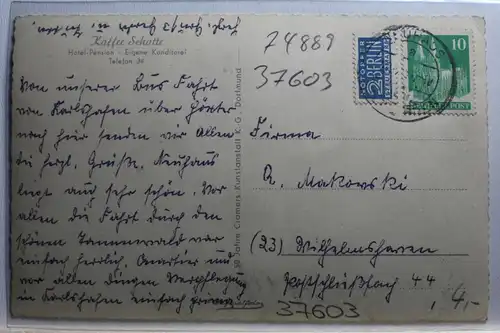 Kaffee Schutte
Hotel-Pension - Eigene Konditorei
Telefon 34
Von unserer Bus Fahrt
von Karlshafen über Höxter
nach hier senden wir allen
die herzl. Grüße. Neuhaus
liegt auch sehr schön. Vor
allem die Fahrt durch den
schönen Tannenwald war
einfach herrlich. Quartier und
vor allen dingen Verpflegung
in Karlshafen einfach prima.
50 Jahre Cramers Kunstanstalt K.G., Dortmund
74889
37603
NOTOPFER
2 BERLIN
STEUERMARKE
10
DEUTSCHE POST
Firma
A. Makowski
(23) Wilhelmshaven
Postschließfach 44
37603
4,-